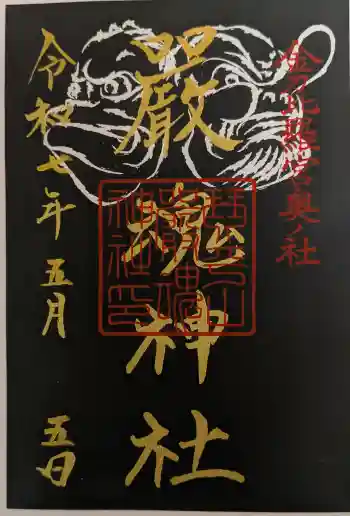 金刀比羅宮奥ノ社
嚴魂神社
令和七年五月五日